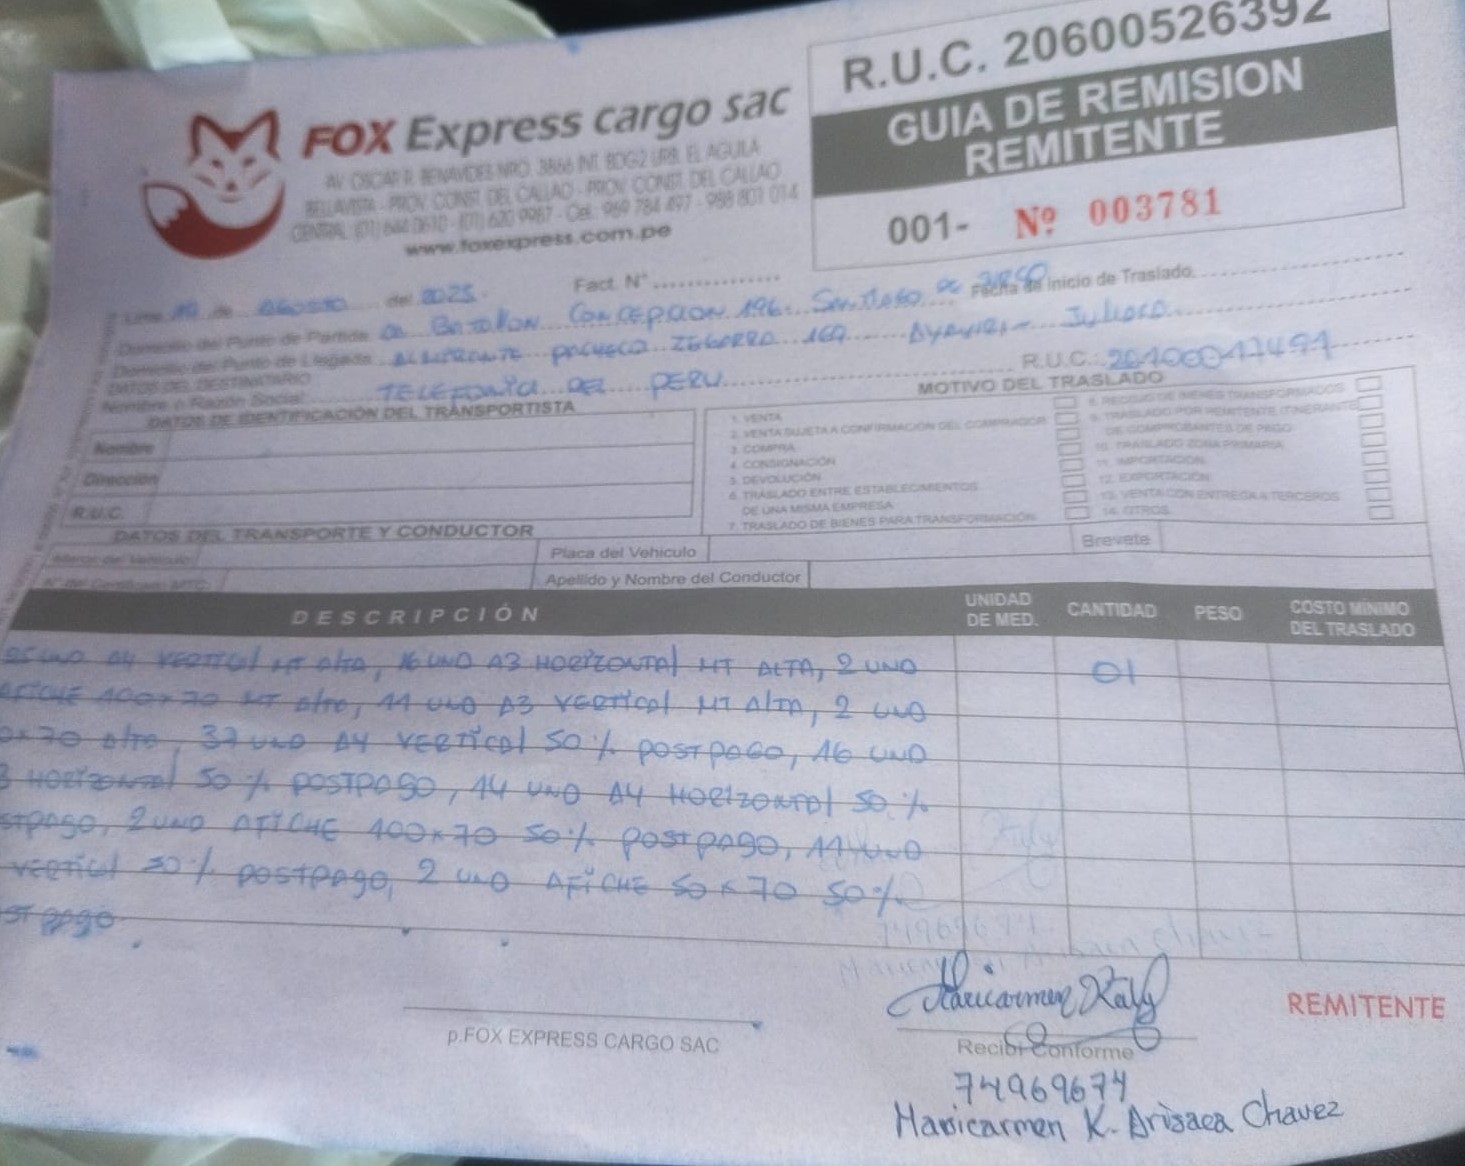 R.U.C. 20600526392
GUIA DE REMISION
REMITENTE
001- Nº 003781
FOX Express cargo sac
AV. OSCAR R. BENAVIDES NRO. 3866 INT. BDG2 URB. EL AGUILA
BELLAVISTA - PROV. CONST. DEL CALLAO - PROV. CONST. DEL CALLAO
CENTRAL: (01) 644 0610 - (01) 620 9987 - Cel.: 969 784 497 - 998 801 014
www.foxexpress.com.pe
Fact. N°
Lima, 19 de agosto del 2025. Fecha de Inicio de Traslado
Domicilio del Punto de Partida: Batallon Concepcion 196. Santiago de Surco
Domicilio del Punto de Llegada: Almirante Pacheco Zegarra 169 Ayaviri - Juliaca
DATOS DEL DESTINATARIO
Nombre o Razón Social: Telefonia del Peru R.U.C.: 20100017491
DATOS DE IDENTIFICACIÓN DEL TRANSPORTISTA
Nombre
Dirección
R.U.C.
MOTIVO DEL TRASLADO
1. VENTA
2. VENTA SUJETA A CONFIRMACIÓN DEL COMPRADOR
3. COMPRA
4. CONSIGNACIÓN
5. DEVOLUCIÓN
6. TRASLADO ENTRE ESTABLECIMIENTOS
DE UNA MISMA EMPRESA
7. TRASLADO DE BIENES PARA TRANSFORMACIÓN
8. RECOJO DE BIENES TRANSFORMADOS
9. TRASLADO POR REMITENTE ITINERANTE
DE COMPROBANTES DE PAGO
10. TRASLADO ZONA PRIMARIA
11. IMPORTACIÓN
12. EXPORTACIÓN
13. VENTA CON ENTREGA A TERCEROS
14. OTROS
DATOS DEL TRANSPORTE Y CONDUCTOR
Marca del Vehículo Placa del Vehiculo Brevete
N° del Certificado MTC. Apellido y Nombre del Conductor
DESCRIPCIÓN UNIDAD DE MED. CANTIDAD PESO COSTO MÍNIMO DEL TRASLADO
UND A4 vertical MT alta, 16 UND A3 Horizontal MT Alta, 2 UND 01
AFICHE 100x70 MT alta, 11 UND A3 vertical MT Alta, 2 UND
70 alta, 37 UND A4 vertical 50% postpago, 16 UND
Horizontal 50% postpago, 14 UND A4 Horizontal 50%
stpago, 2 UND AFICHE 100x70 50% postpago, 11 UND
vertical 50% postpago, 2 UND AFICHE 50x70 50%
stpago
p.FOX EXPRESS CARGO SAC
Maricarmen Kaly
Recibí Conforme
REMITENTE
74969674
Maricarmen K. Arisaca Chavez